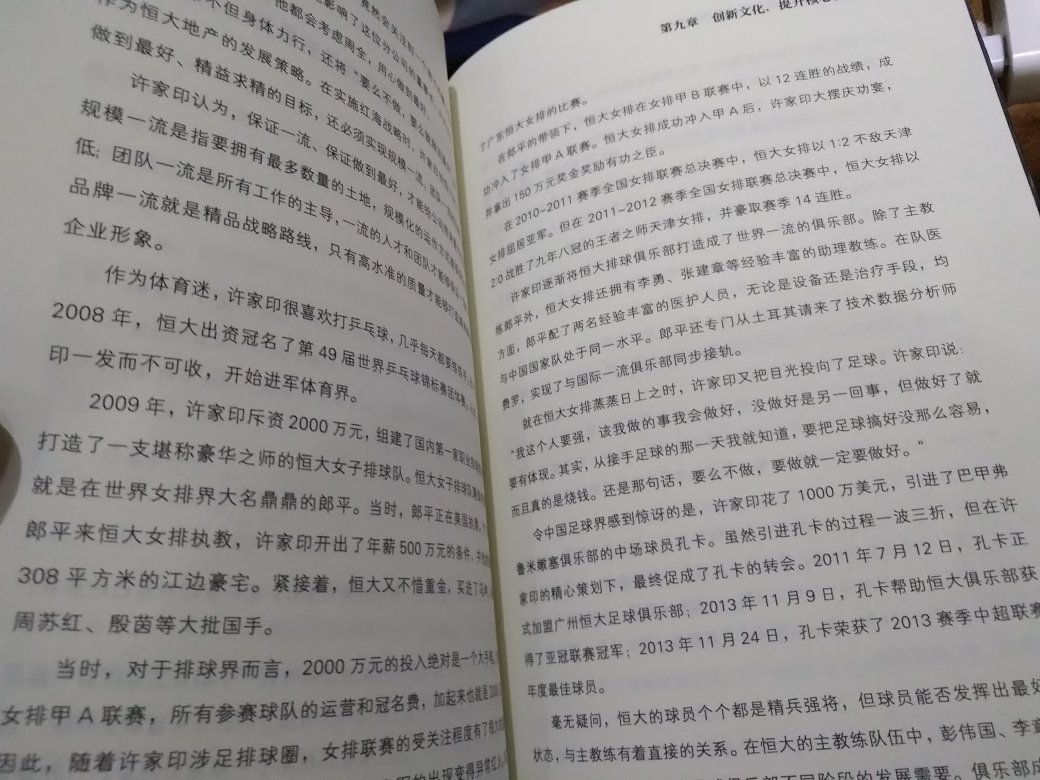 竟然会关注到
影响了这位分公司的董事长
他都会考虑周全，用心做到最好。
不但身体力行，还将“要么不做，要么
作为恒大地产的发展策略。在实施红海战略时，许家印
做到最好、精益求精的目标，还必须实现规模一流、团队一流
许家印认为，保证一流、保证做到最好，才能
规模一流是指要拥有最多数量的土地，规模化的运作方式
低；团队一流是所有工作的主导，一流的人才和团队才能够
品牌一流就是精品战略路线，只有高水准的质量才能够打造
企业形象。
作为体育迷，许家印很喜欢打乒乓球，几乎每天都要
2008 年，恒大出资冠名了第 49 届世界乒乓球锦标赛团体赛。
印一发而不可收，开始进军体育界。
2009 年，许家印斥资 2000 万元，组建了国内第一家职业
打造了一支堪称豪华之师的恒大女子排球队。恒大女子排球队
就是在世界女排界大名鼎鼎的郎平。当时，郎平正在美国执教，
郎平来恒大女排执教，许家印开出了年薪 500 万元的条件，并
308 平方米的江边豪宅。紧接着，恒大又不惜重金，买进了
周苏红、殷茵等大批国手。
当时，对于排球界而言，2000 万元的投入绝对是一个大手笔，
女排甲 A 联赛，所有参赛球队的运营和冠名费，加起来也就是 2000
因此，随着许家印涉足排球圈，女排联赛的受关注程度有了
的出现变得异常
第九章 创新文化，提升核心
了广东恒大女排的比赛。
在郎平的带领下，恒大女排在女排甲 B 联赛中，以 12 连胜的战绩，成
功冲入了女排甲 A 联赛。恒大女排成功冲入甲 A 后，许家印大摆庆功宴，
并拿出 150 万元奖金奖励有功之臣。
在 2010~2011 赛季全国女排联赛总决赛中，恒大女排以 1:2 不敌天津
女排屈居亚军。但在 2011~2012 赛季全国女排联赛总决赛中，恒大女排以
2:0 战胜了九年八冠的王者之师天津女排，并豪取赛季 14 连胜。
许家印逐渐将恒大排球俱乐部打造成了世界一流的俱乐部。除了主教
练郎平外，恒大女排还拥有李勇、张建章等经验丰富的助理教练。在队医
方面，郎平配了两名经验丰富的医护人员，无论是设备还是治疗手段，均
与中国国家队处于同一水平。郎平还专门从土耳其请来了技术数据分析师
费罗，实现了与国际一流俱乐部同步接轨。
就在恒大女排蒸蒸日上之时，许家印又把目光投向了足球。许家印说：
“我这个人要强，该我做的事我会做好，没做好是另一回事，但做好了就
要有体现。其实，从接手足球的那一天我就知道，要把足球搞好没那么容易，
而且真的是烧钱。还是那句话，要么不做，要做就一定要做好。”
令中国足球界感到惊讶的是，许家印花了 1000 万美元，引进了巴甲弗
鲁米嫩塞俱乐部的中场球员孔卡。虽然引进孔卡的过程一波三折，但在许
家印的精心策划下，最终促成了孔卡的转会。2011 年 7 月 12 日，孔卡正
式加盟广州恒大足球俱乐部；2013 年 11 月 9 日，孔卡帮助恒大俱乐部获
得了亚冠联赛冠军；2013 年 11 月 24 日，孔卡荣获了 2013 赛季中超联赛
年度最佳球员。
毫无疑问，恒大的球员个个都是精兵强将，但球员能否发挥出最好
状态，与主教练有着直接的关系。在恒大的主教练队伍中，彭伟国、李章
俱乐部不同阶段的发展需要，俱乐部成